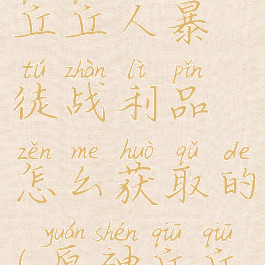 丘丘人暴
tú zhàn lì pǐn
徒战利品
zěn me huò qǔ de
怎么获取的
yuán shén qiū qiū
(原神丘丘